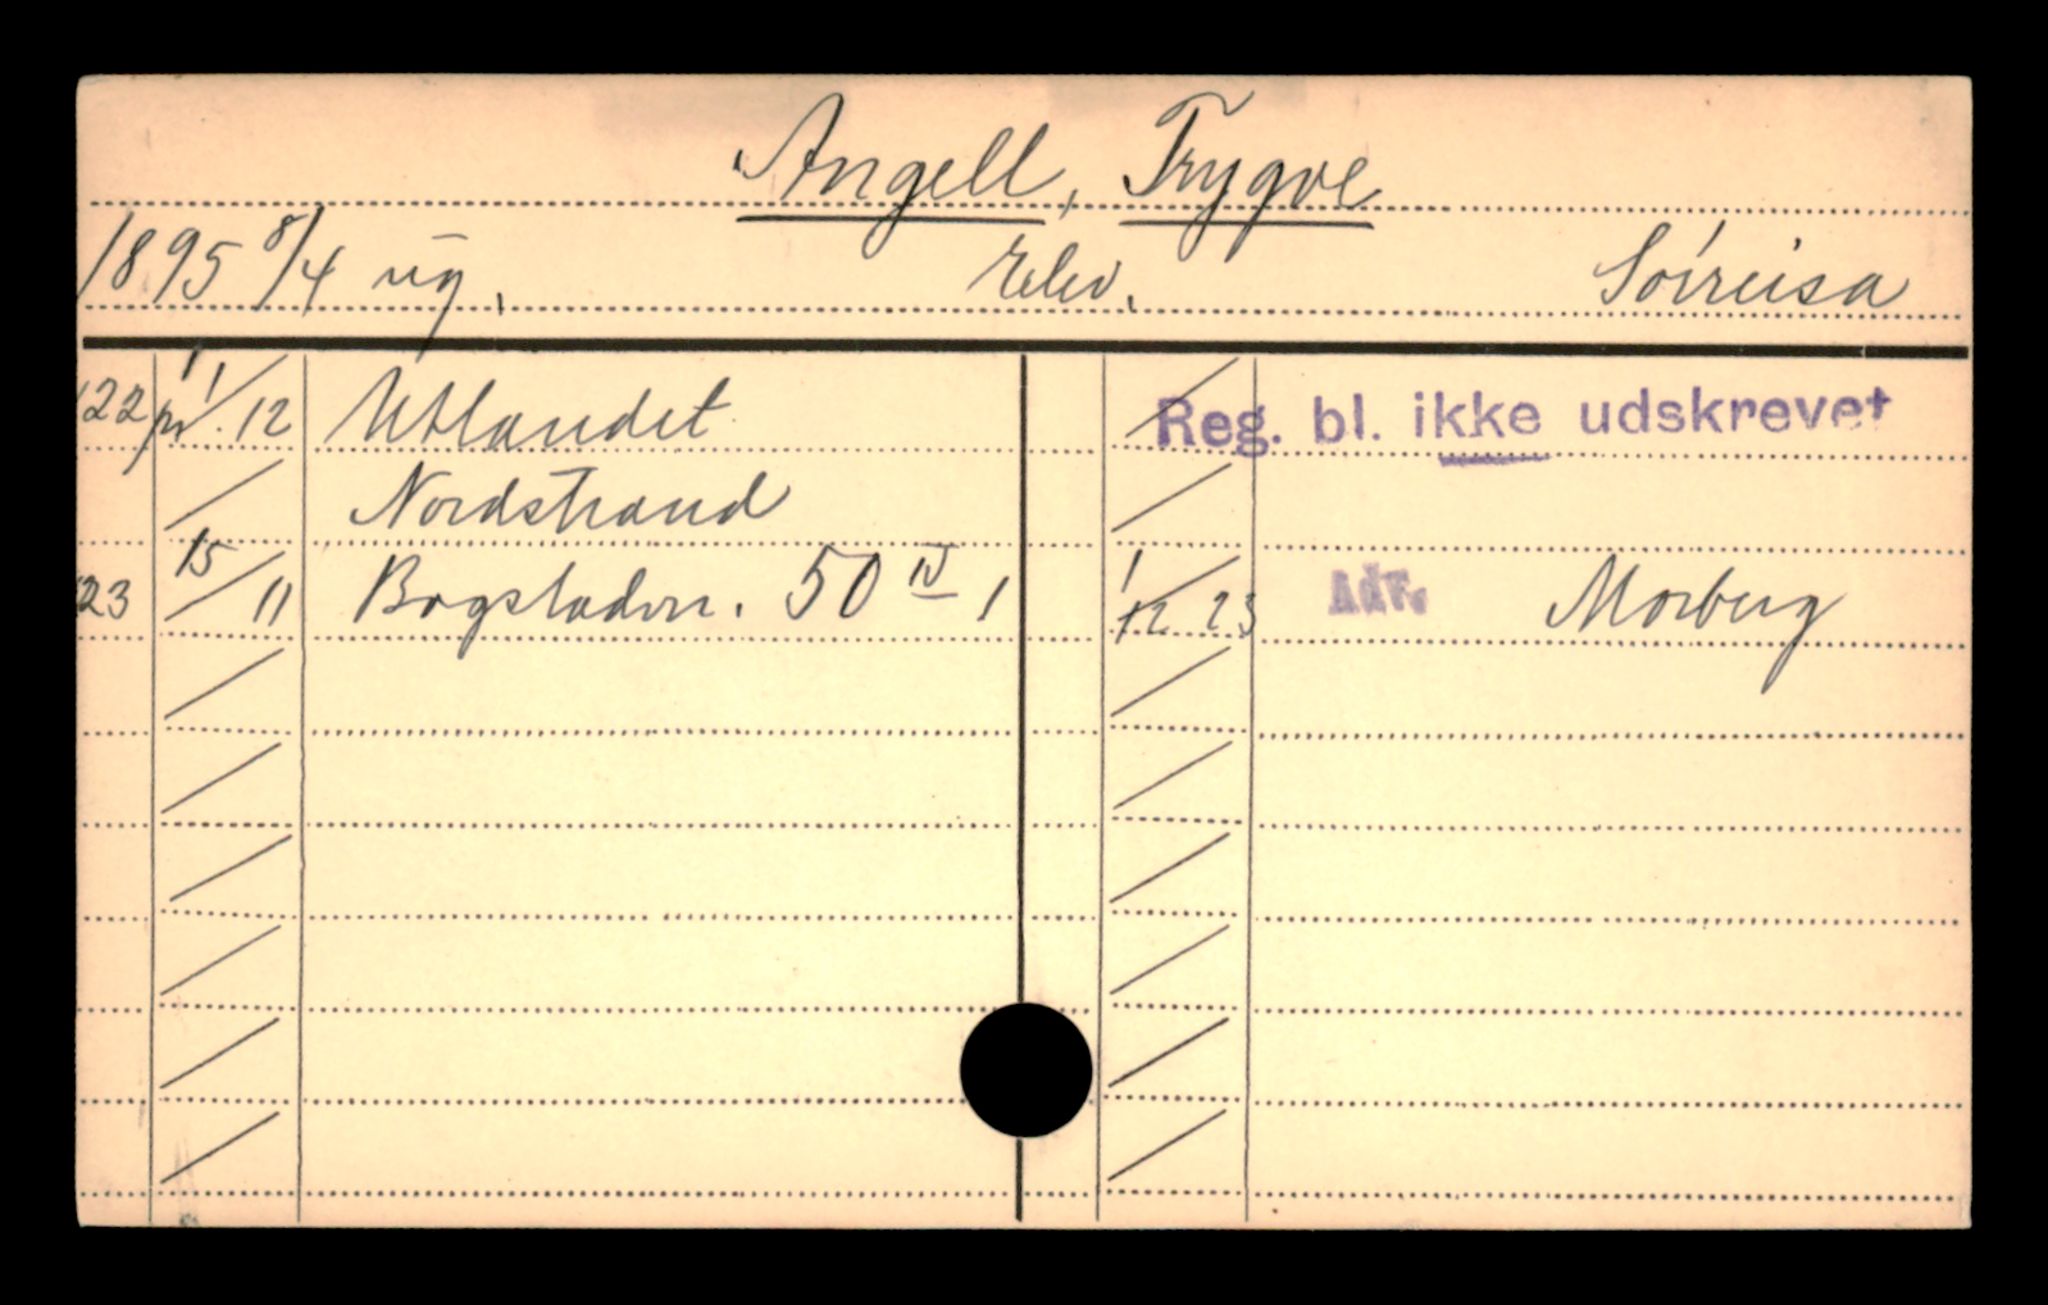 Angell, Trygve
1895 8/4 ug. Elev. Sörreisa
'22 pr. 1/12 Utlandet Reg. bl. ikke udskrevet
Nordstrand
'23 15/11 Bogstadvn. 50 IV 1 1/12 23 Adr. Morberg